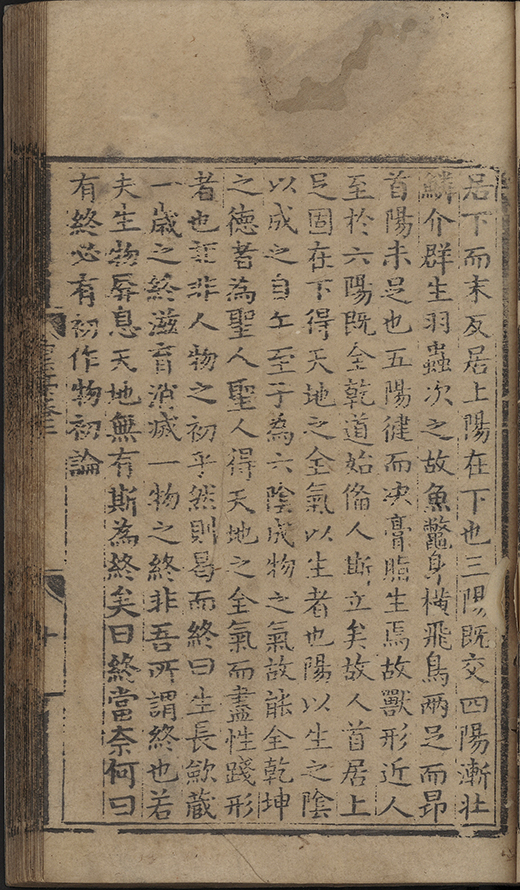 居下而末反居上陽在下也三陽既交四陽漸壯
鱗介群生羽蟲次之故魚鼈身橫飛鳥兩足而昻
首陽未足也五陽健而决膏脂生焉故獸形近人
至於六陽既全乾道始俻人斯立矣故人首居上
足固在下得天地之全氣以生者也陽以生之陰
以成之自午至子為六陰成物之氣故能全乾坤
之德者為聖人聖人得天地之全氣而盡性踐形
者也玆非人物之初乎然則曷而終曰生長歛蔵
一歲之終滋育消㓕一物之終非吾所謂終也若
夫生物屏息天地無有斯為終矣曰終當奈何曰
有終必有初作物初論
十